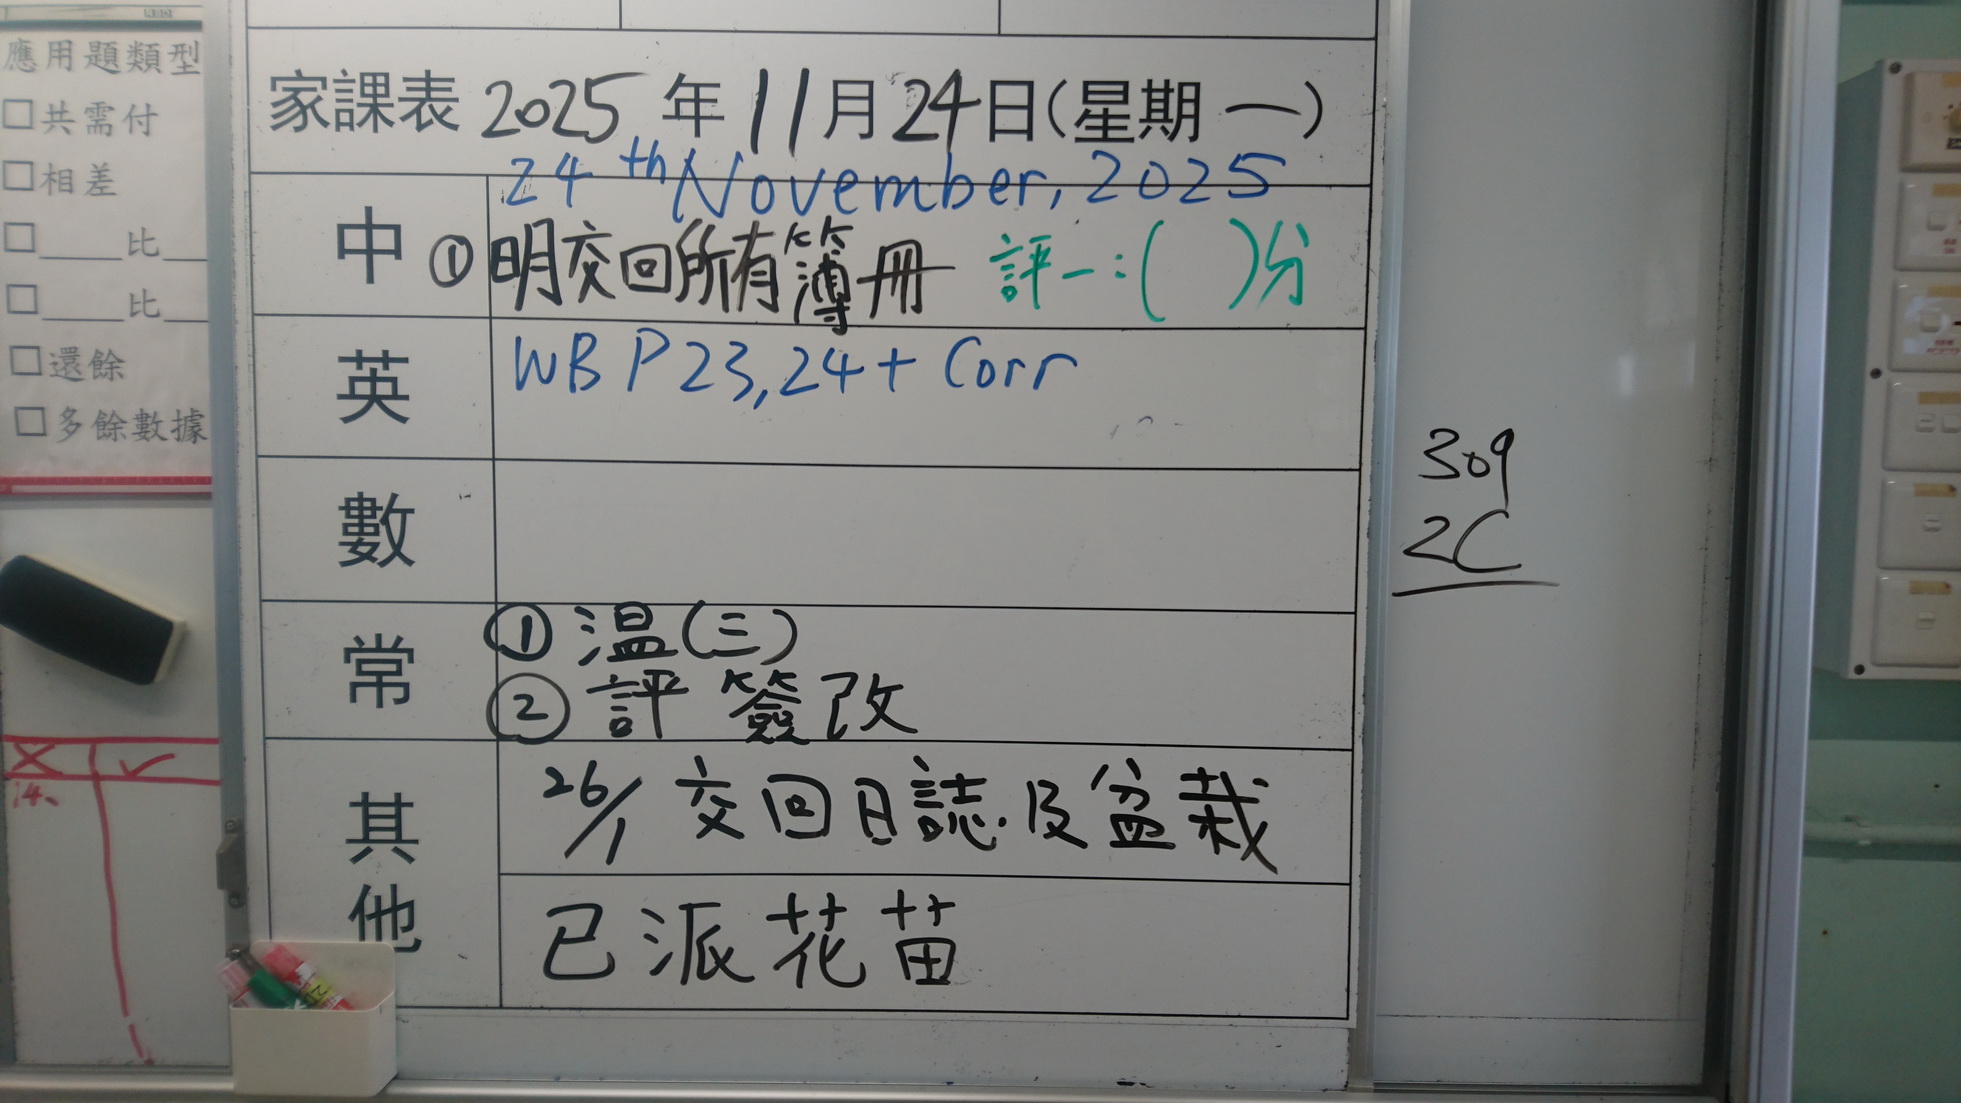 應用題類型
□共需付
□相差
□____比__
□____比__
□還餘
□多餘數據
家課表 2025 年 11月24日(星期一)
24th November, 2025
中 ①明交回所有簿冊 評一:( )分
英 WB P 23, 24 + Corr
數
常 ①溫(三)
②評 簽改
其他 26/1 交回日誌及盆栽
已派花苗
309
2C
X ✓
14、